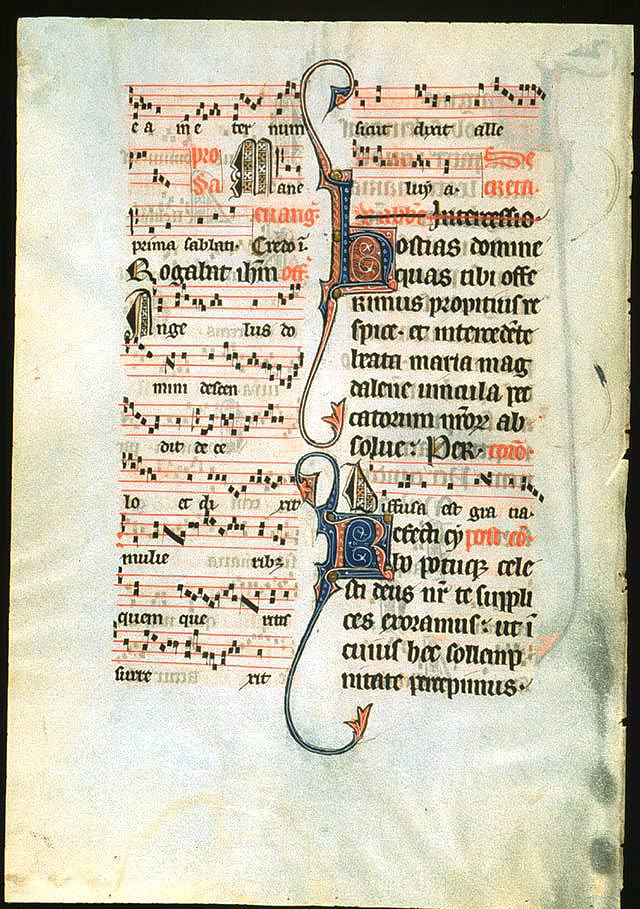 e a in e ter num
pro
Sa Mane
euang̃
prima sabbati. Credo ĩ.
Rogabat ihm off̃
Ange lus do
mini descen
dit de ce
lo et di xit
mulie ribꝫ
quem que ritis
surre xit
sicut dixit alle
luya. Secreta.
Intercessio
Hostias domine
quas tibi offe
rimus propitius re
spice. et intercedẽte
beata maria mag
dalene vincula pec
catorum nr̃oꝝ ab
solue. Per. com̃.
Diffusa est gra tia.
Refecti cy post cõ.
bo potuqꝫ cele
sti deus nr̃ te suppli
ces exoramus. ut ĩ
cuius hec sollemp
nitate percepimus.